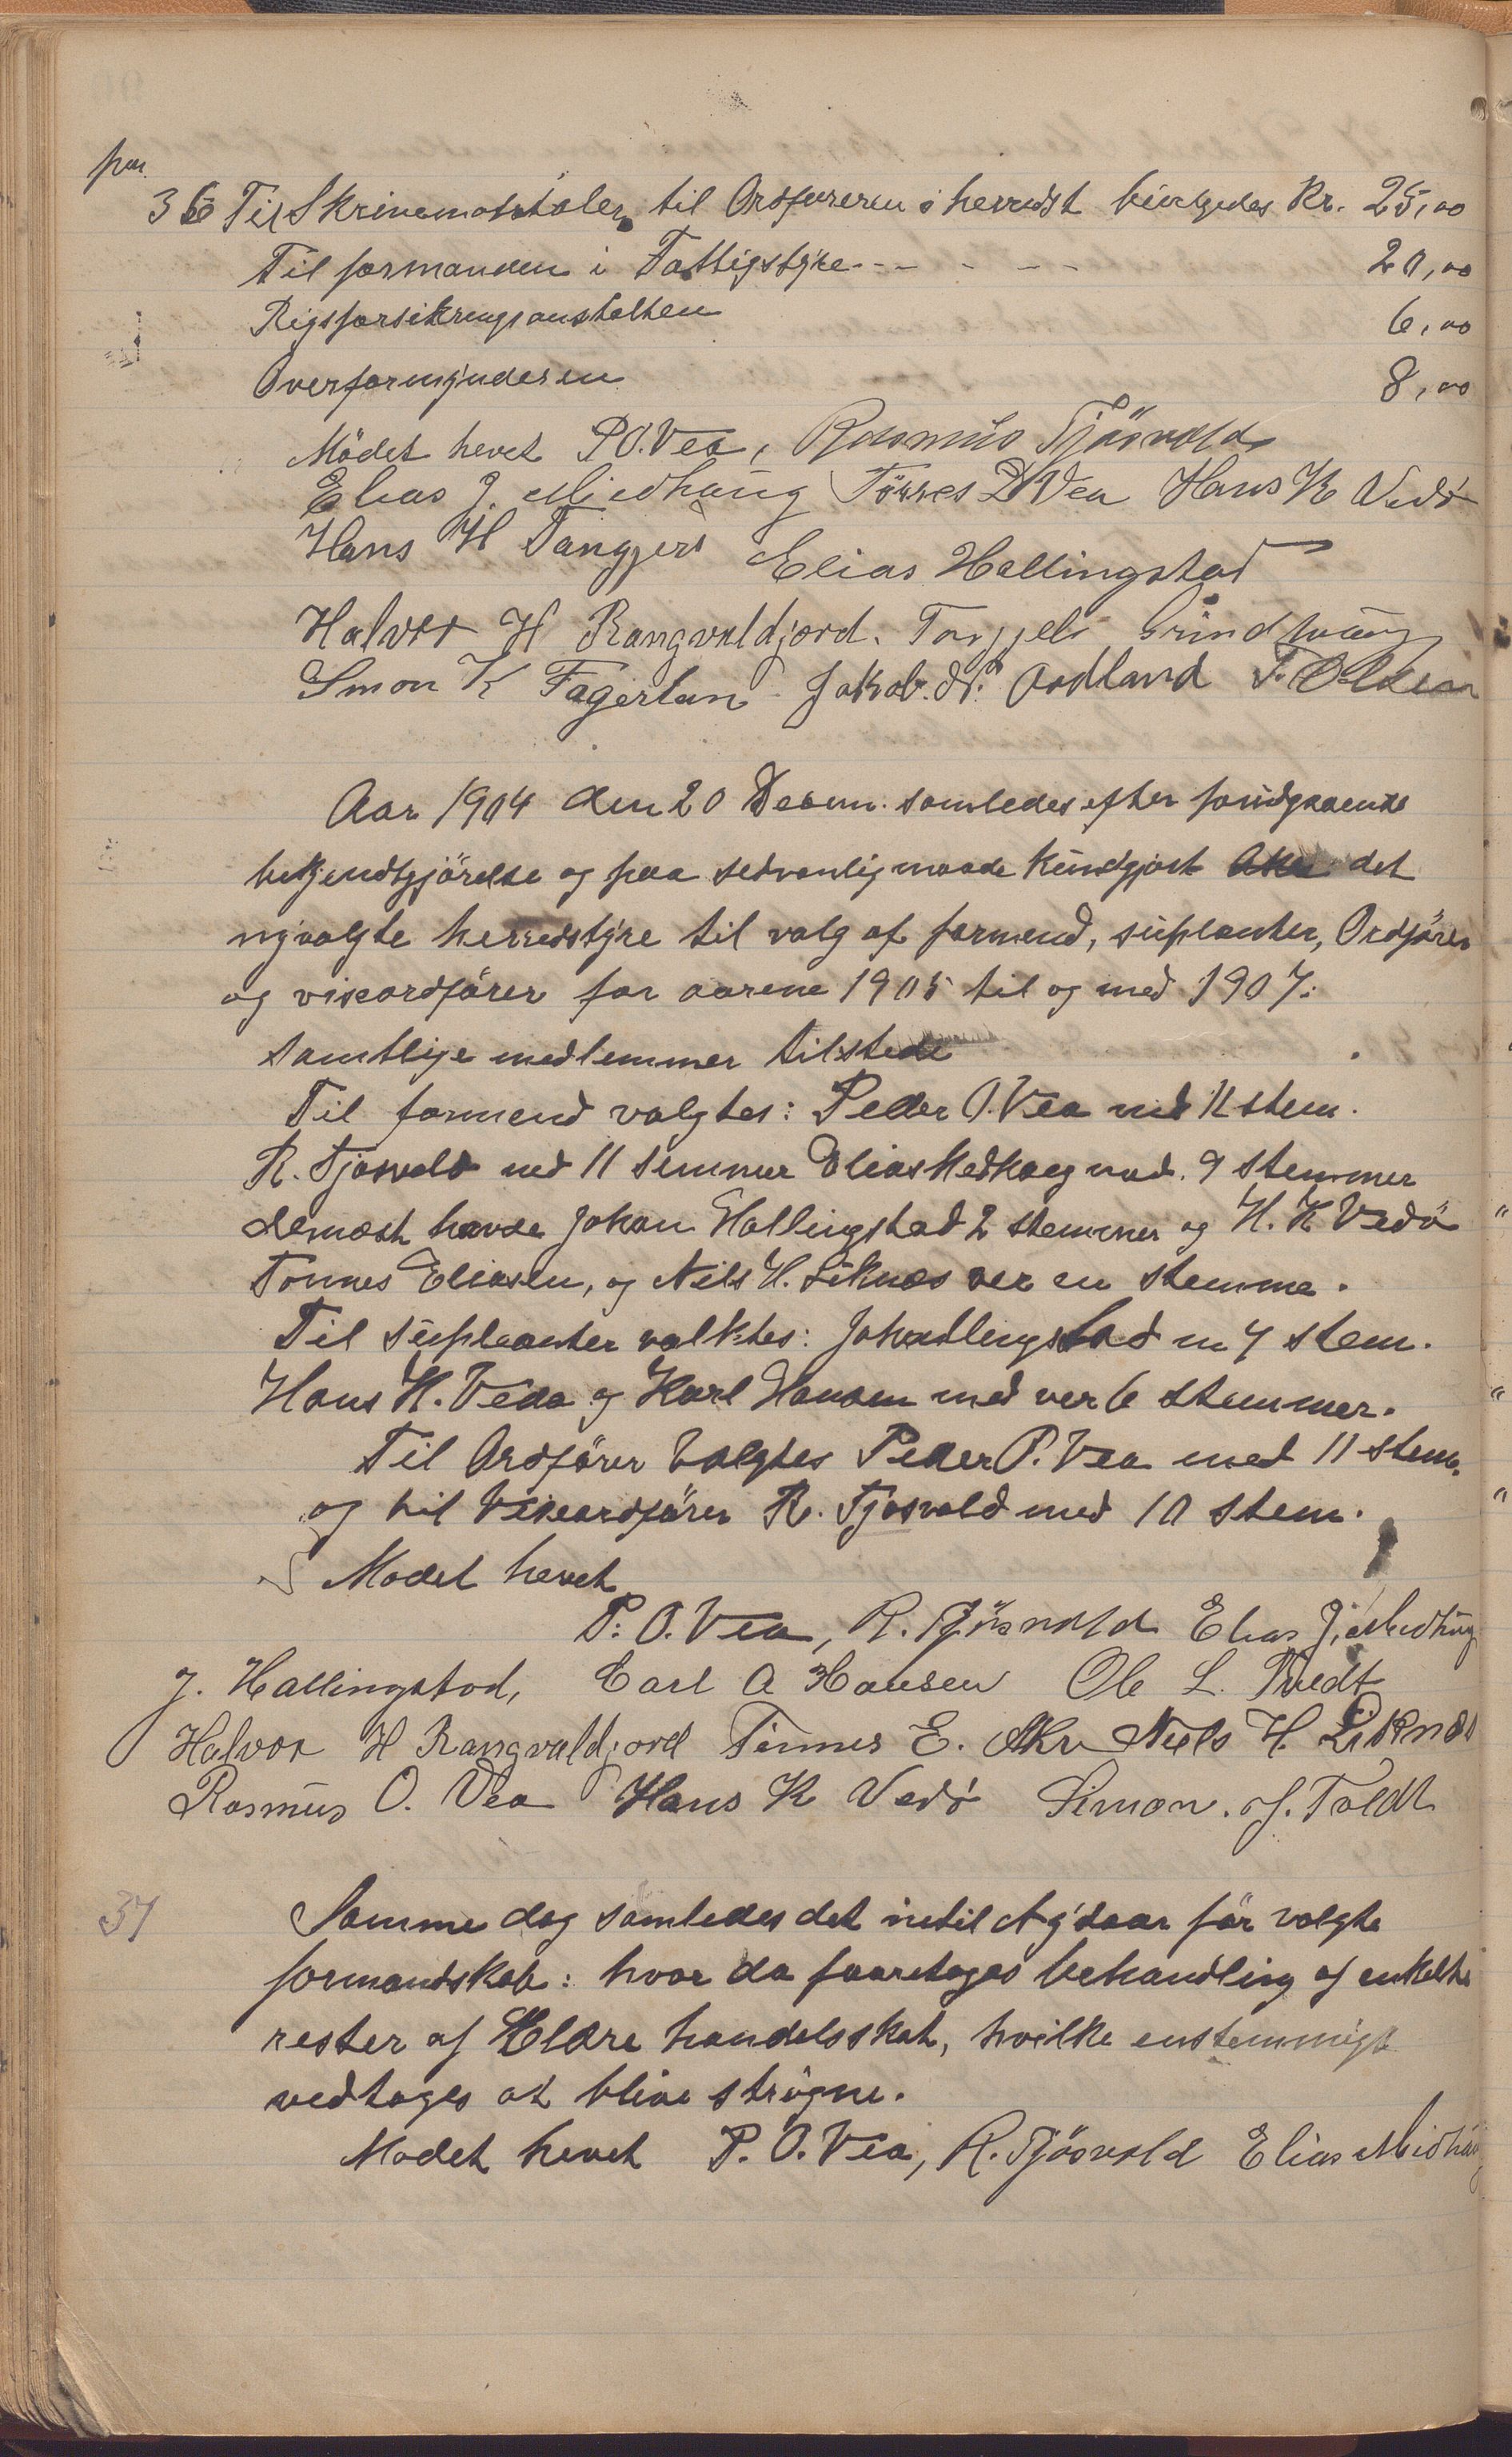 par
36 Til Skrivematrialer til Ordføreren i herredst bevilgedes Kr. 25,00
Til formanden i Fattigstyre - - - - - 20,00
Rigsforsikringsanstalten 6,00
Overformynderen 8,00
Mödet hevet P.O. Vea, Rasmus Tjösvold
Elias J. Midhaug Törres Vea Hans K Vedö
Hans H Tangjerd Elias Hallingstad
Halvor H Rangvaldjord. Torjjels Grindhaug
Smon K Fagerlan Jakob. N. Aadland T. Olsen
Aar 1904 den 20 Desem. samledes efter forudgaaende
bekjendtgjörelse og paa sedvanlig maade kundgjort det
nyvalgte herredstyre til valg af formend, suplanter, Ordförer
og viseordförer for aarene 1905 til og med 1907.
samtlige medlemmer tilstede
Til formend valgtes: Peder O. Vea med 11 stem.
R. Tjosvold med 11 stemmer Elias Medhaug med. 9 stemmer
dernæst havde Johan Hallingstad 2 stemmer og H. K Vedö
Tonnes Eliasen, og Nils H. Liknes ver en stemme.
Til supleanter valktes: Johallingstad m 7 stem.
Hans K. Vedø og Karl Hansen med ver 6 stemmer.
Til Ordförer Valgtes Peder O. Vea med 11 stem.
og til Viseordförer R. Tjosvold med 10 stem.
Modet hevet
P. O. Vea, R. Tjösvold Elias J. Medhug
J. Hallingstad, Carl A Hansen Ole L. Tvedt
Halvor H Rangvaldjord Tönnes E. Akre Niels H. Liknes
Rasmus O. Vea Hans K Vedö Simon. J. Toldt
37 Samme dag samledes det indtil Nytaar för valgte
formandskab: hvor da foaretoges behandling af enkelte
rester af Eldre handelsskat, hvilke enstemmigt
vedtoges at blive strögne.
Modet hevet P. O. Vea, R. Tjösvold Elias Midhaug